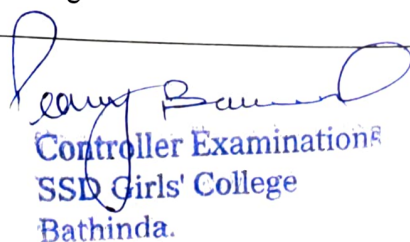 Controller Examinations
SSD Girls' College
Bathinda.